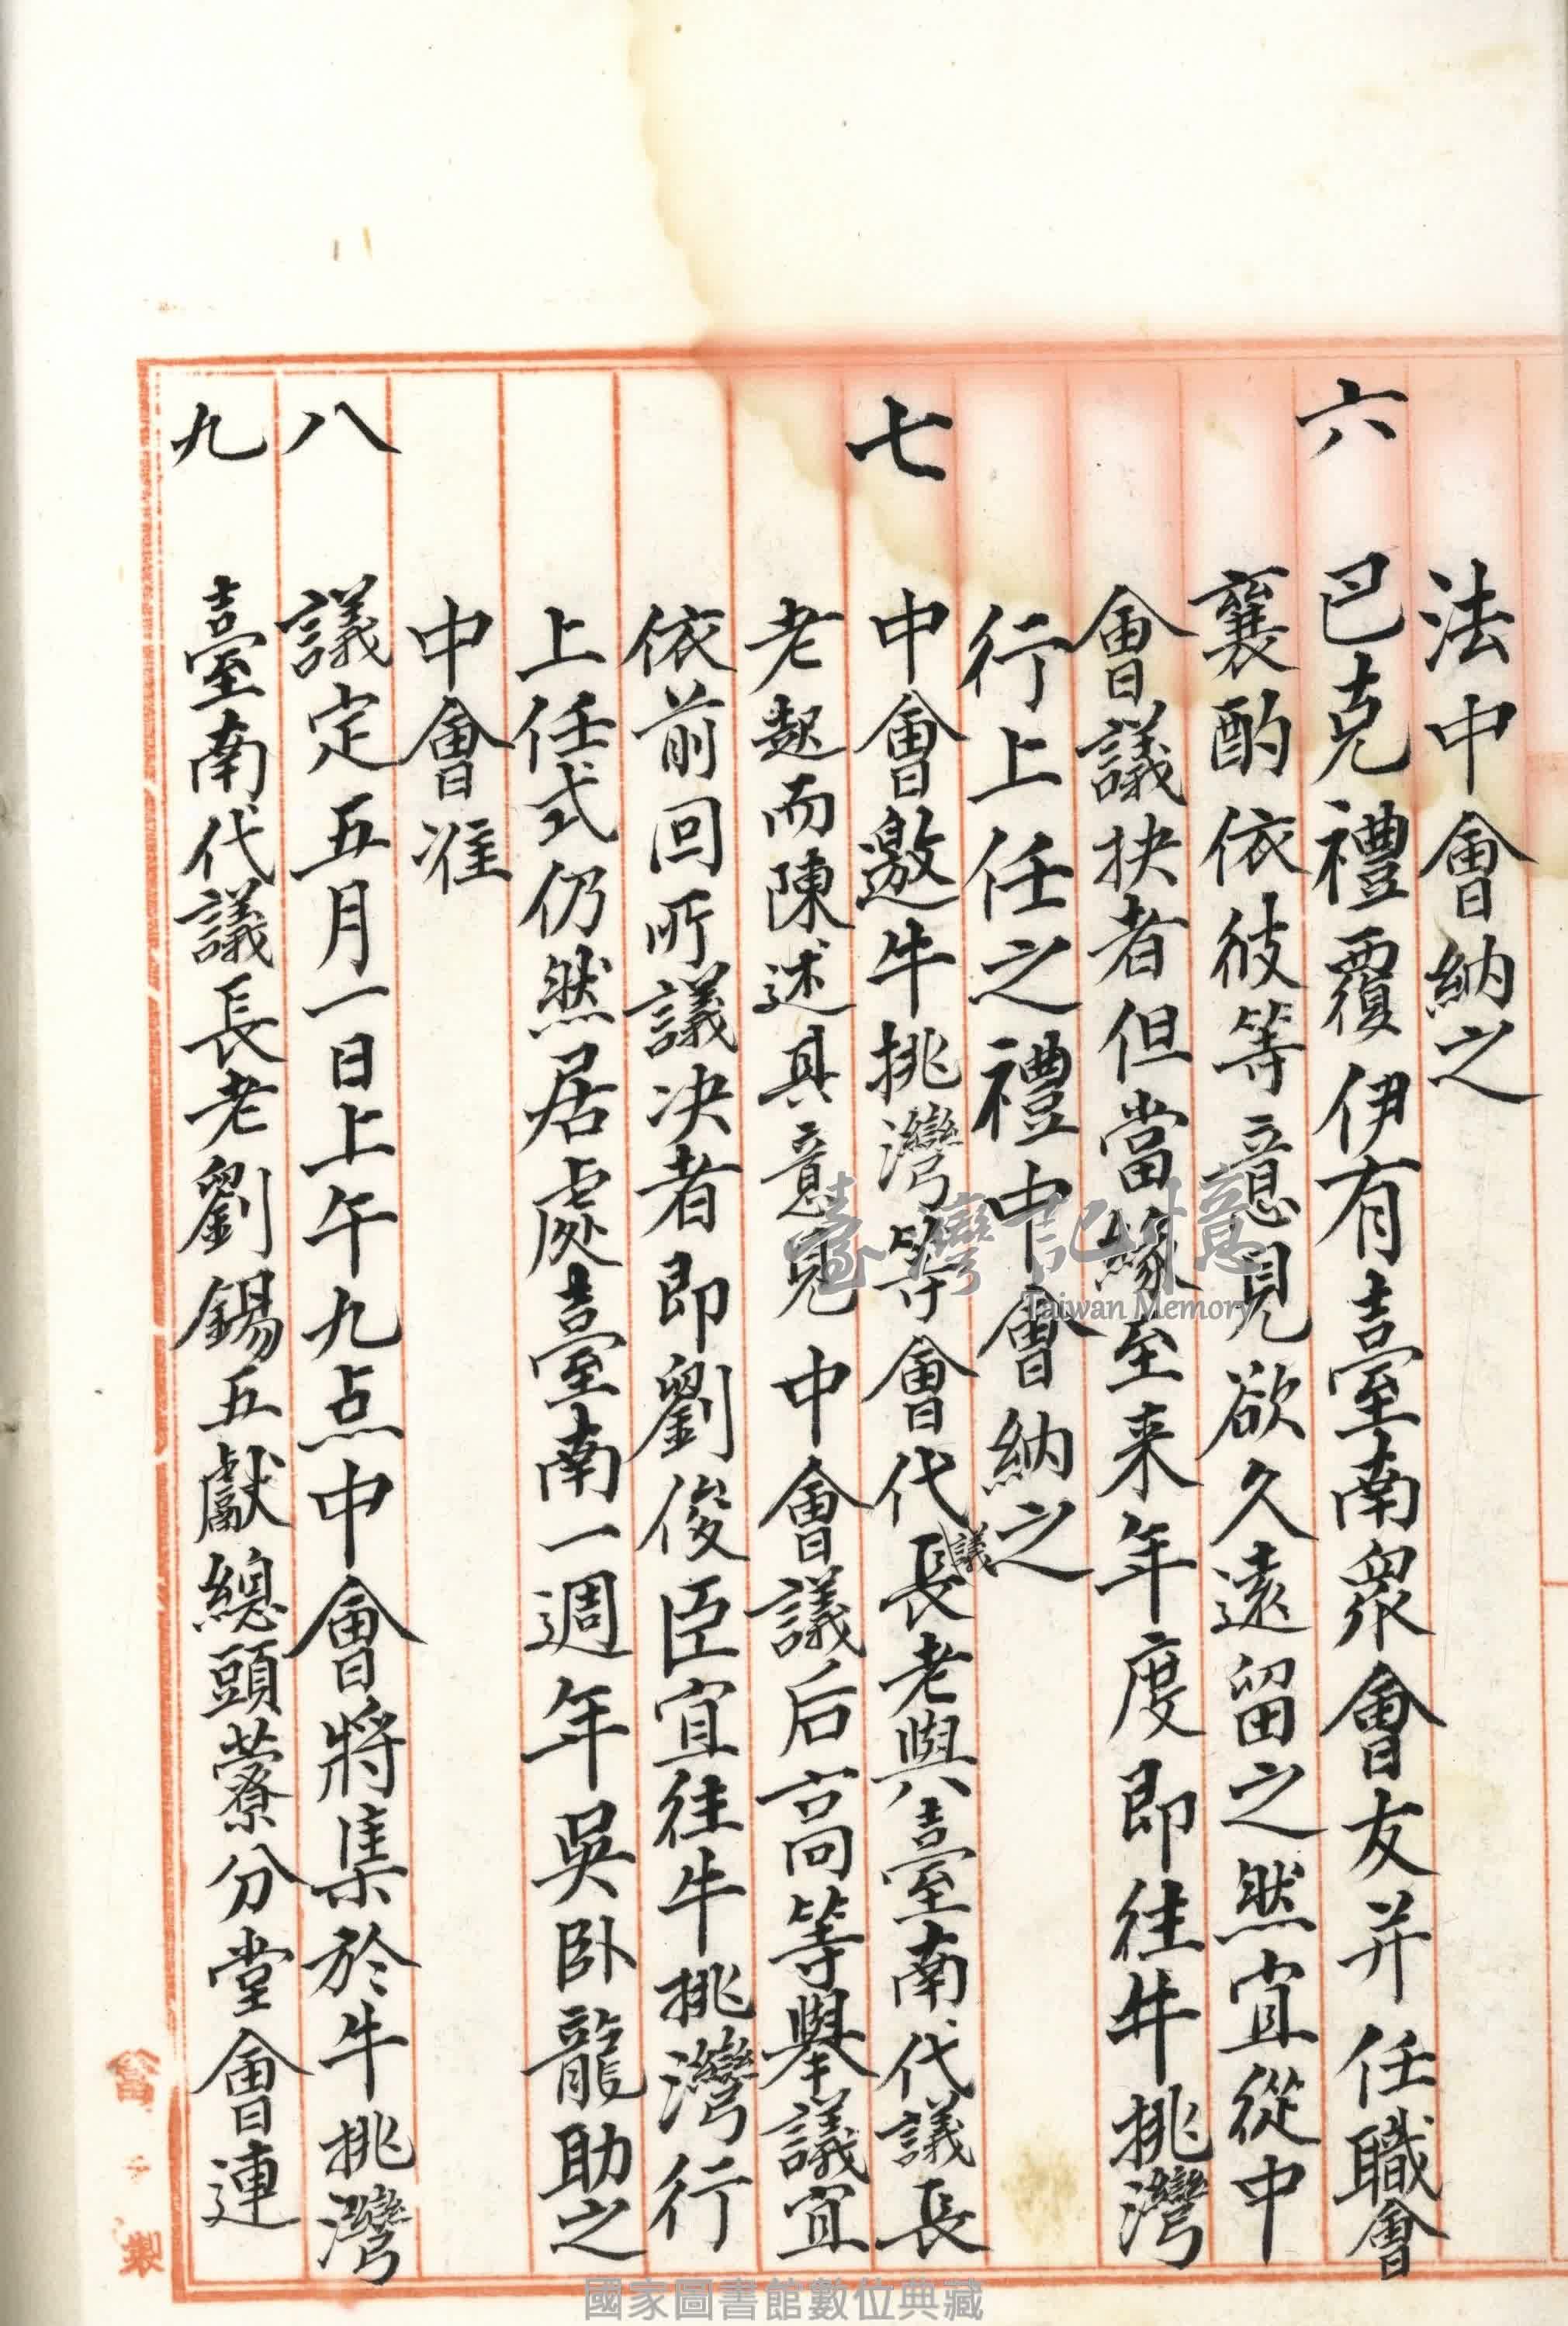 法中會納之
六 巴克禮覆伊有臺南眾會友并任職會
襄酌依彼等意見欲久遠留之然宜從中
會議抉者但當緣至来年度即往牛挑灣
行上任之禮中會納之
七 中會邀牛挑灣等會代議長老與臺南代議長
老起而陳述其意見中會議后高等舉議宜
依前回所議决者即劉俊臣宜往牛挑灣行
上任式仍然居處臺南一週年吳卧龍助之
中會准
八 議定五月一日上午九点中會將集於牛挑灣
九 臺南代議長老劉錫五獻總頭藔分堂會連
臺灣記憶
Taiwan Memory
國家圖書館數位典藏